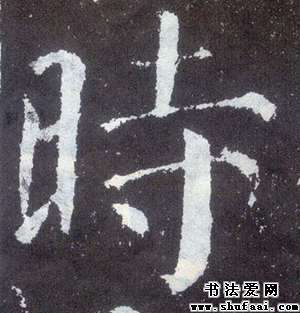 時
书法爱网
www.shufaai.com